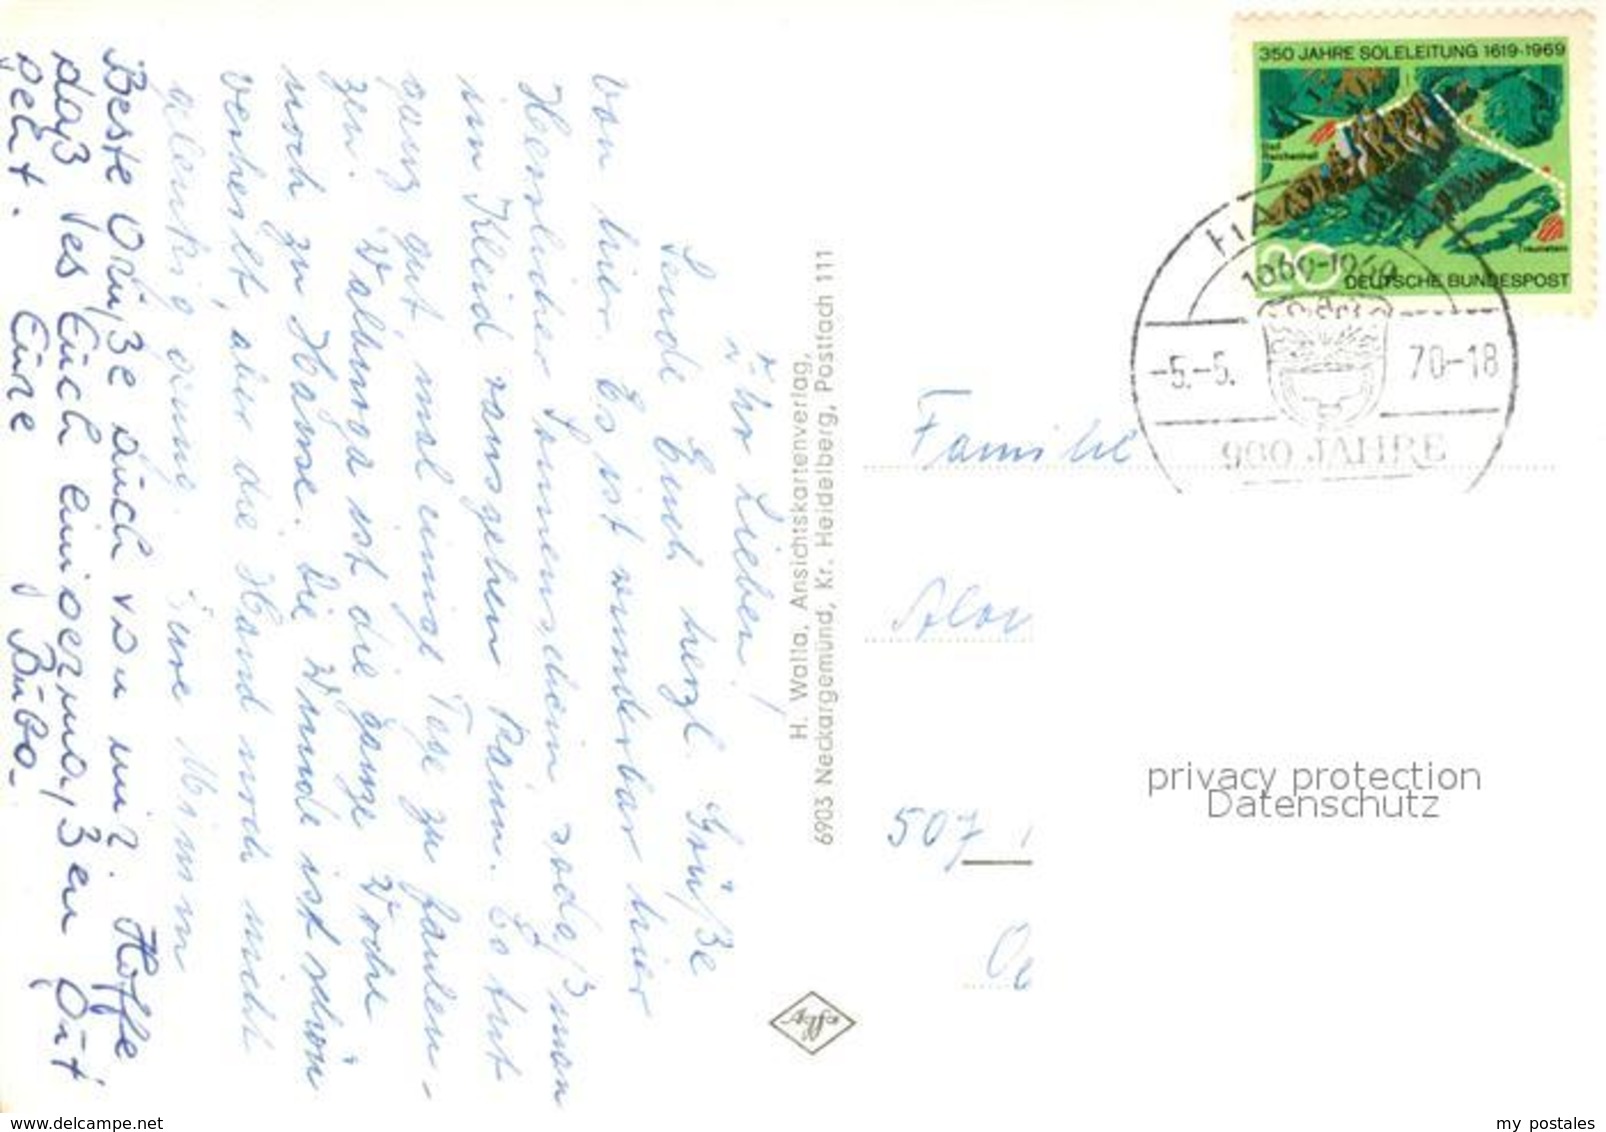 Ihr Lieben!
Sende Euch herzl. Grüße
von hier. Es ist wunderbar hier
Herrlicher Sonnenschein, sodaß man
im Kleid rausgehen kann. Es tut
ganz gut mal einige Tage zu faulen-
zen. Walburga ist die ganze Woche
noch zu Hause. Die Wunde ist schön
verheilt, aber die Hand noch nicht
gelenkig genug. Eure Mimm
Beste Grüße auch von mir. Hoffe
daß es Euch einigermaßen gut
geht. Eure Bubo-
H. Walla, Ansichtskartenverlag,
6903 Neckargemünd, Kr. Heidelberg, Postfach 111
350 JAHRE SOLELEITUNG 1619-1969
Bad
Reichenhall
Traunstein
20
DEUTSCHE BUNDESPOST
1069-1969
-5.-5. 70-18
900 JAHRE
Familie
507
privacy protection
Datenschutz
www.delcampe.net
my postales